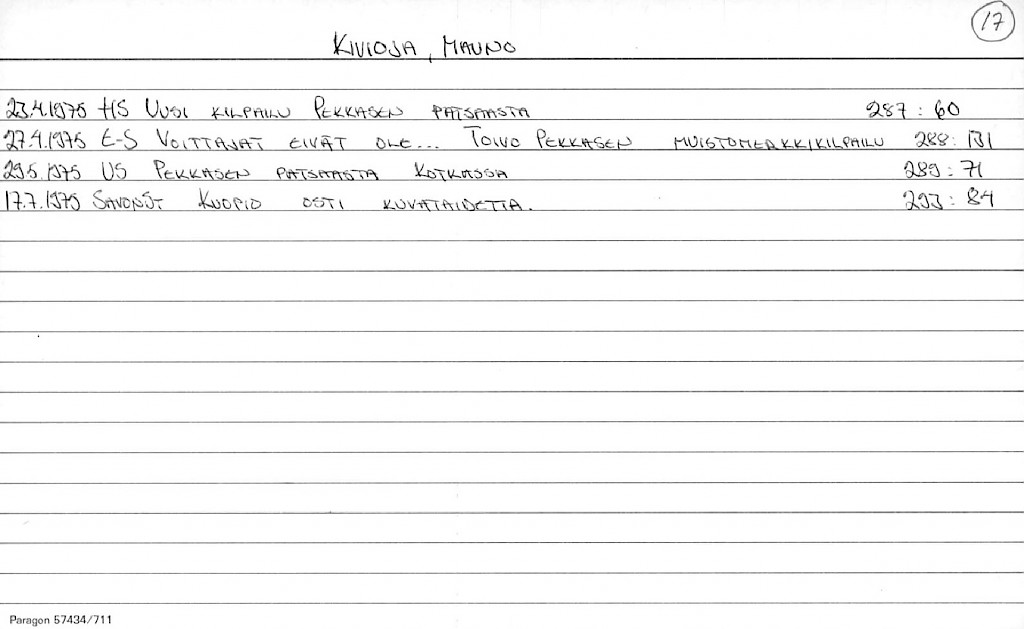 17
KIVIOJA, MAUNO
23.4.1975 HS UUSI KILPAILU PEKKASEN PATSAASTA 287: 60
27.4.1975 E-S VOITTAJAT EIVÄT OLE... TOIVO PEKKASEN MUISTOMERKKIKILPAILU 288: 191
29.5.1975 US PEKKASEN PATSAASTA KOTKASSA 289: 71
17.7.1975 SAVONST KUOPIO OSTI KUVATAIDETTA. 293: 84
Paragon 57434/711